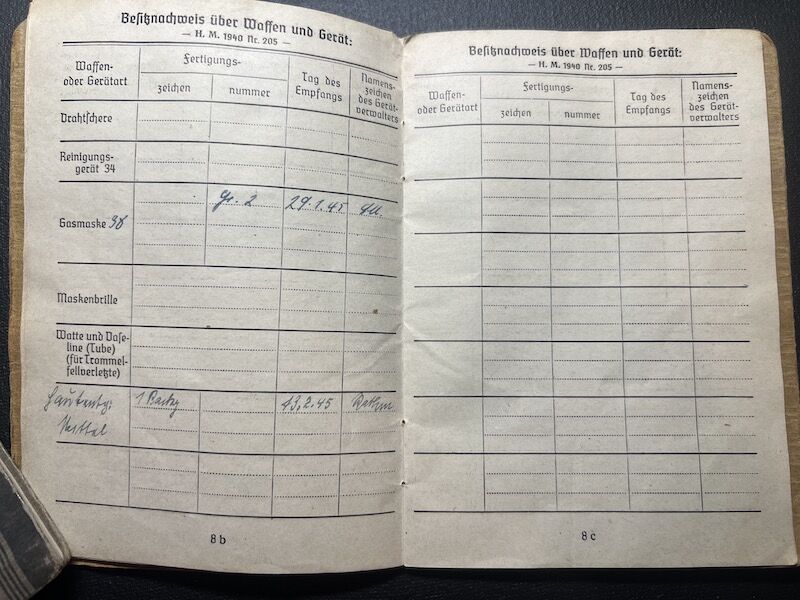 Besitznachweis über Waffen und Gerät:
— H. M. 1940 Nr. 205 —
Waffen-
oder Gerätart
Fertigungs-
zeichen
nummer
Tag des
Empfangs
Namens-
zeichen
des Gerät-
verwalters
Drahtschere
Reinigungs-
gerät 34
Gasmaske 38
Gr. 2
29.1.45
Maskenbrille
Watte und Vase-
line (Tube)
(für Trommel-
fellverletzte)
Hautentg.
1 Packg
13.2.45
Mittel
8 b
Besitznachweis über Waffen und Gerät:
— H. M. 1940 Nr. 205 —
Waffen-
oder Gerätart
Fertigungs-
zeichen
nummer
Tag des
Empfangs
Namens-
zeichen
des Gerät-
verwalters
8 c